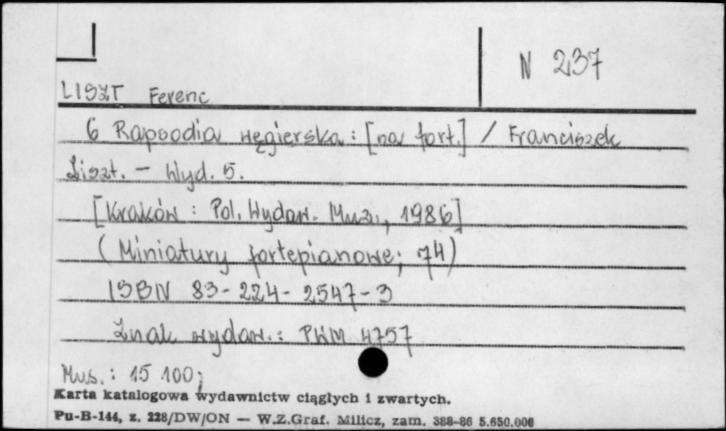 N 237
LISZT Ferenc
6 Rapsodia węgierska : [na fort.] / Franciszek
Liszt. - Wyd. 5.
[Kraków : Pol. Wydaw. Muz., 1986]
(Miniatury fortepianowe; 74)
ISBN 83-224-2547-3
Znak wydaw.: PWM 4757
Mus.: 15 100;
Karta katalogowa wydawnictw ciągłych i zwartych.
Pu-B-144, z. 228/DW/ON — W.Z.Graf. Milicz, zam. 388-86 5.650.000